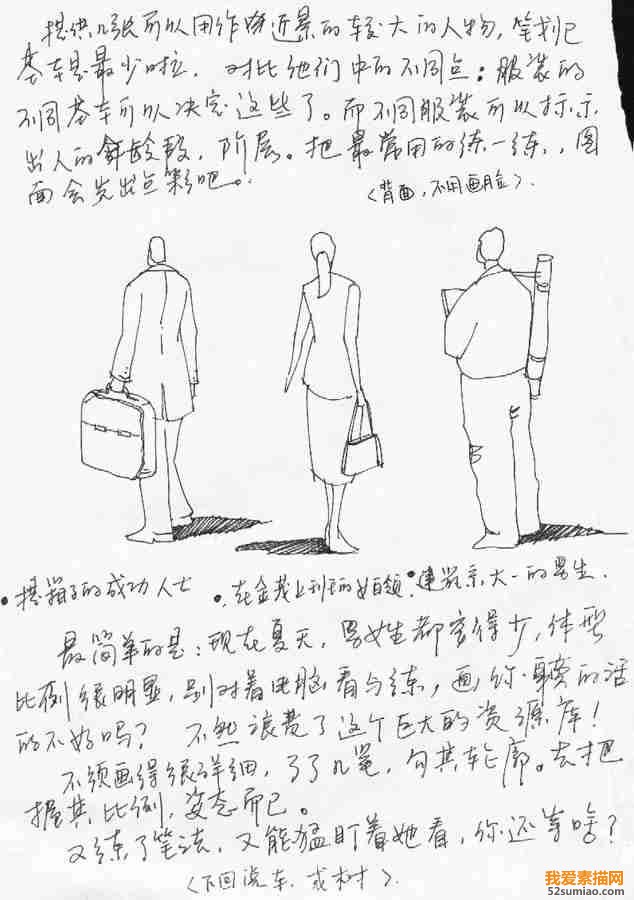 提供几张可以用作为近景的较大的人物,笔划已
基本是最少啦.对比他们中的不同点:服装的
不同基本可以决定这些了。而不同服装可以标示
出人的年龄段,阶层。把最常用的练一练,,图
面会先出点彩吧。
<背面,不用画脸>.
• 提箱子的成功人士
•.在金茂上班的女白领
•建筑系大一的男生.
最简单的是:现在夏天,男女生都穿得少,体型
比例很明显,别对着电脑看与练,画你身旁的活
的不好吗?不然浪费了这个巨大的资源库!
不须画得很详细,了了几笔,勾其轮廓。去把
握其比例,姿态而已。
又练了笔法,又能猛盯着她看,你还等啥?
<下回说车.或树>.
我爱素描网
52sumiao.com